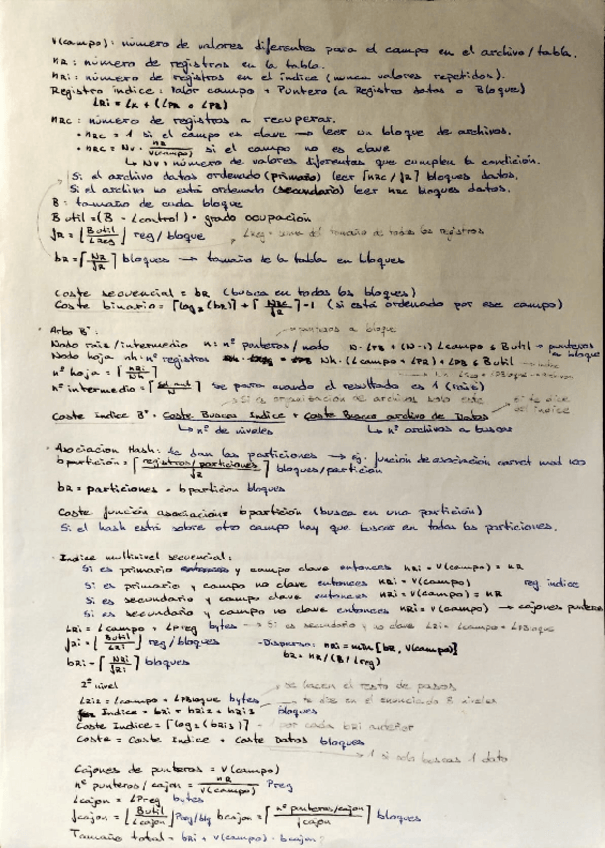 V(campo): número de valores diferentes para el campo en el archivo/tabla.
nR: número de registros en la tabla.
nRi: número de registros en el índice (nunca valores repetidos).
Registro índice: valor campo + Puntero (a Registro datos o Bloque)
LRi = LK + (LPR o LPB)
nRC: número de registros a recuperar.
• nRC = 1 si el campo es clave → leer un bloque de archivos.
• nRC = Nv · nR / V(campo) si el campo no es clave
↳ Nv: número de valores diferentes que cumplen la condición.
Si el archivo datos ordenado (primario) leer ⌈nRC/fR⌉ bloques datos.
Si el archivo no está ordenado (secundario) leer nRC bloques datos.
B: tamaño de cada bloque
B util = (B - Lcontrol) · grado ocupación
fR = ⌊Butil / LReg⌋ reg/bloque LReg = suma del tamaño de todos los registros
bR = ⌈NR / fR⌉ bloques → tamaño de la tabla en bloques
Coste secuencial = bR (busca en todos los bloques)
Coste binario = ⌈log2(bR)⌉ + ⌈NRC / fR⌉ - 1 (si está ordenado por ese campo)
• Arbo B+: punteros a bloque
Nodo raiz/intermedio n: nº punteros/nodo N · LPB + (N-1) Lcampo ≤ Butil → punteros a bloque
Nodo hoja nh: nº registros Nh · (Lcampo + LPR) + LPB ≤ Butil
nº hoja = ⌈nRi / Nh⌉
nº intermedio = ⌈ / N⌉ se para cuando el resultado es 1 (raiz)
Si es organización de archivos solo este
Coste Indice B+ = Coste Busca Indice + Coste Busca archivo de Datos si te dice del índice
↳ nº de niveles ↳ nº archivos a buscar
• Asociacion Hash: te dan las particiones → ej. función de asociación carnet mod 100
b partición = ⌈registros/particiones / fR⌉ bloques/partición
bR = particiones · bparticion bloques
Coste función asociación = bpartición (busca en una partición)
Si el hash está sobre otro campo hay que buscar en todas las particiones.
• Indice multinivel secuencial:
Si es primario y campo clave entonces nRi = V(campo) = nR
Si es primario y campo no clave entonces nRi = V(campo) reg indice
Si es secundario y campo clave entonces nRi = V(campo) = nR
Si es secundario y campo no clave entonces nRi = V(campo) → cajones punteros
LRi = Lcampo + LPreg bytes → Si es secundario y no clave LRi = Lcampo + LPBloque
fRi = ⌊Butil / LRi⌋ reg/bloques - Disperso: nRi = min[bR, V(campo)]
bRi = ⌈NRi / fRi⌉ bloques bR = nR / (B/Lreg)
2º nivel se hacen el resto de pasos
LRi2 = Lcampo + LPBloque bytes te dice en el enunciado 3 niveles
Indice = bRi + bRi2 + bRi3 bloques
Coste Indice = ⌈log2(bRi3)⌉ + 1 por cada bRi anterior
Coste = Coste Indice + Coste Datos bloques
1 si solo buscas 1 dato
Cajones de punteros = V(campo)
nº punteros/cajon = nR / V(campo) Preg
Lcajon = LPreg bytes
fcajon = ⌊Butil / Lcajon⌋ Preg/blq bcajon = ⌈nº punteros/cajon / fcajon⌉ bloques
Tamaño total = bRi + V(campo) · bcajon